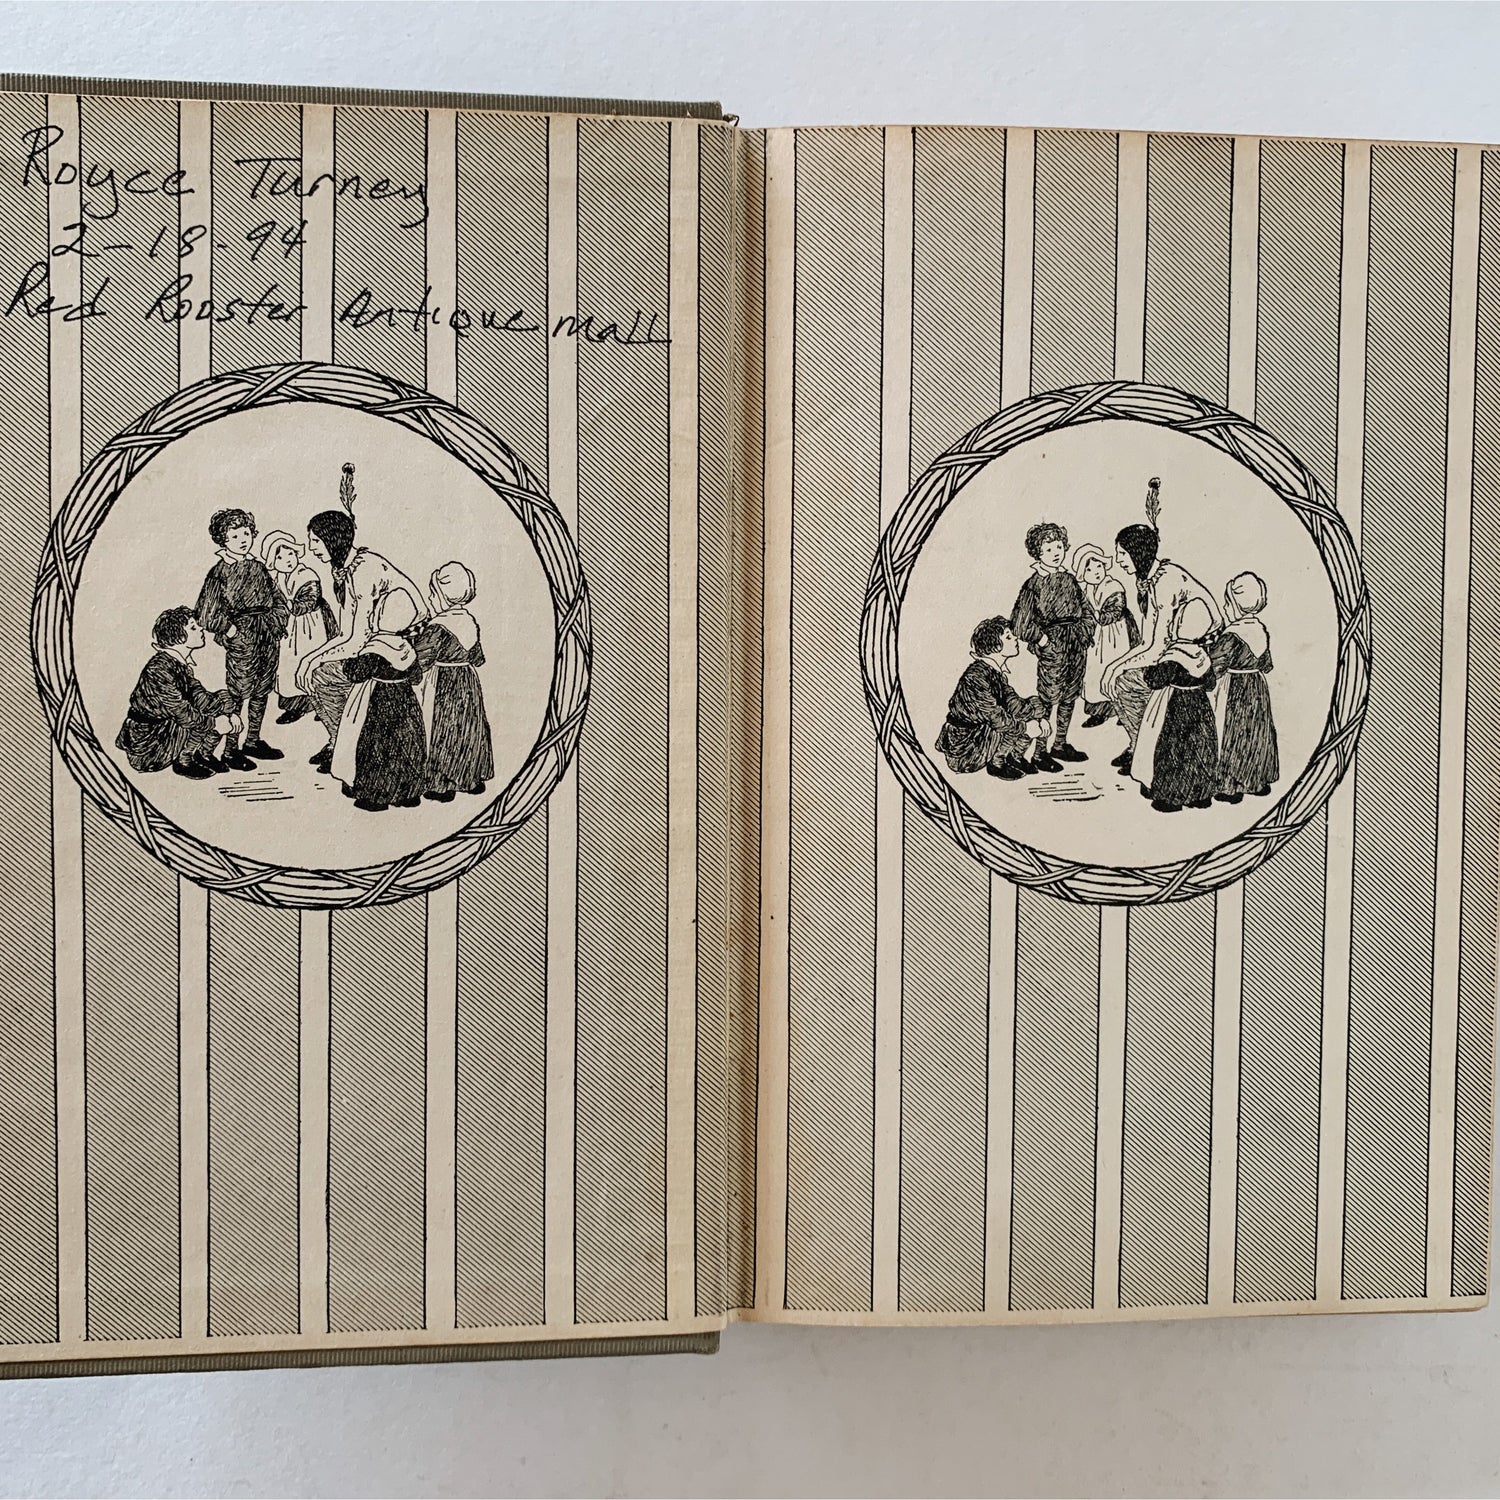 Royce Turney
2-18-94
Red Rooster Antique mall